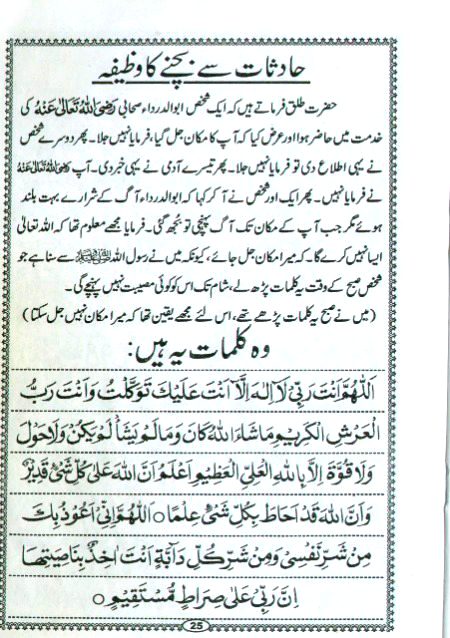 حادثات سے بچنے کا وظیفہ
حضرت طلق فرماتے ہیں کہ ایک شخص ابوالدرداء صحابی رَضِیَ اللہُ تَعَالٰی عَنْہُ کی
خدمت میں حاضر ہوا اور عرض کیا کہ آپ کا مکان جل گیا، فرمایا نہیں جلا۔ پھر دوسرے شخص
نے یہی اطلاع دی تو فرمایا نہیں جلا۔ پھر تیسرے آدمی نے یہی خبر دی۔ آپ رَضِیَ اللہُ تَعَالٰی عَنْہُ
نے فرمایا نہیں۔ پھر ایک اور شخص نے آ کر کہا کہ ابوالدرداء آگ کے شرارے بہت بلند
ہوئے مگر جب آپ کے مکان تک آگ پہنچی تو بُجھ گئی۔ فرمایا مجھے معلوم تھا کہ اللہ تعالیٰ
ایسا نہیں کرے گا۔ کہ میرا مکان جل جائے، کیونکہ میں نے رسول اللہ ﷺ سے سنا ہے جو
شخص صبح کے وقت یہ کلمات پڑھ لے، شام تک اس کو کوئی مصیبت نہیں پہنچے گی۔
(میں نے صبح یہ کلمات پڑھے تھے، اس لئے مجھے یقین تھا کہ میرا مکان نہیں جل سکتا)
وہ کلمات یہ ہیں:
اَللّٰهُمَّ اَنْتَ رَبِّیْ لَآ اِلٰهَ اِلَّآ اَنْتَ عَلَیْكَ تَوَكَّلْتُ وَاَنْتَ رَبُّ
الْعَرْشِ الْكَرِیْمِ مَاشَآءَ اللّٰهُ كَانَ وَمَا لَمْ یَشَأْ لَمْ یَكُنْ وَلَا حَوْلَ
وَلَا قُوَّةَ اِلَّا بِاللّٰهِ الْعَلِیِّ الْعَظِیْمِ اَعْلَمُ اَنَّ اللّٰهَ عَلٰی كُلِّ شَیْءٍ قَدِیْرٌ
وَاَنَّ اللّٰهَ قَدْ اَحَاطَ بِكُلِّ شَیْءٍ عِلْمًا ○ اَللّٰهُمَّ اِنِّیْ اَعُوْذُ بِكَ
مِنْ شَرِّ نَفْسِیْ وَمِنْ شَرِّ كُلِّ دَآبَّةٍ اَنْتَ اٰخِذٌۢ بِنَاصِیَتِهَا
اِنَّ رَبِّیْ عَلٰی صِرَاطٍ مُّسْتَقِیْمٍ ○
25